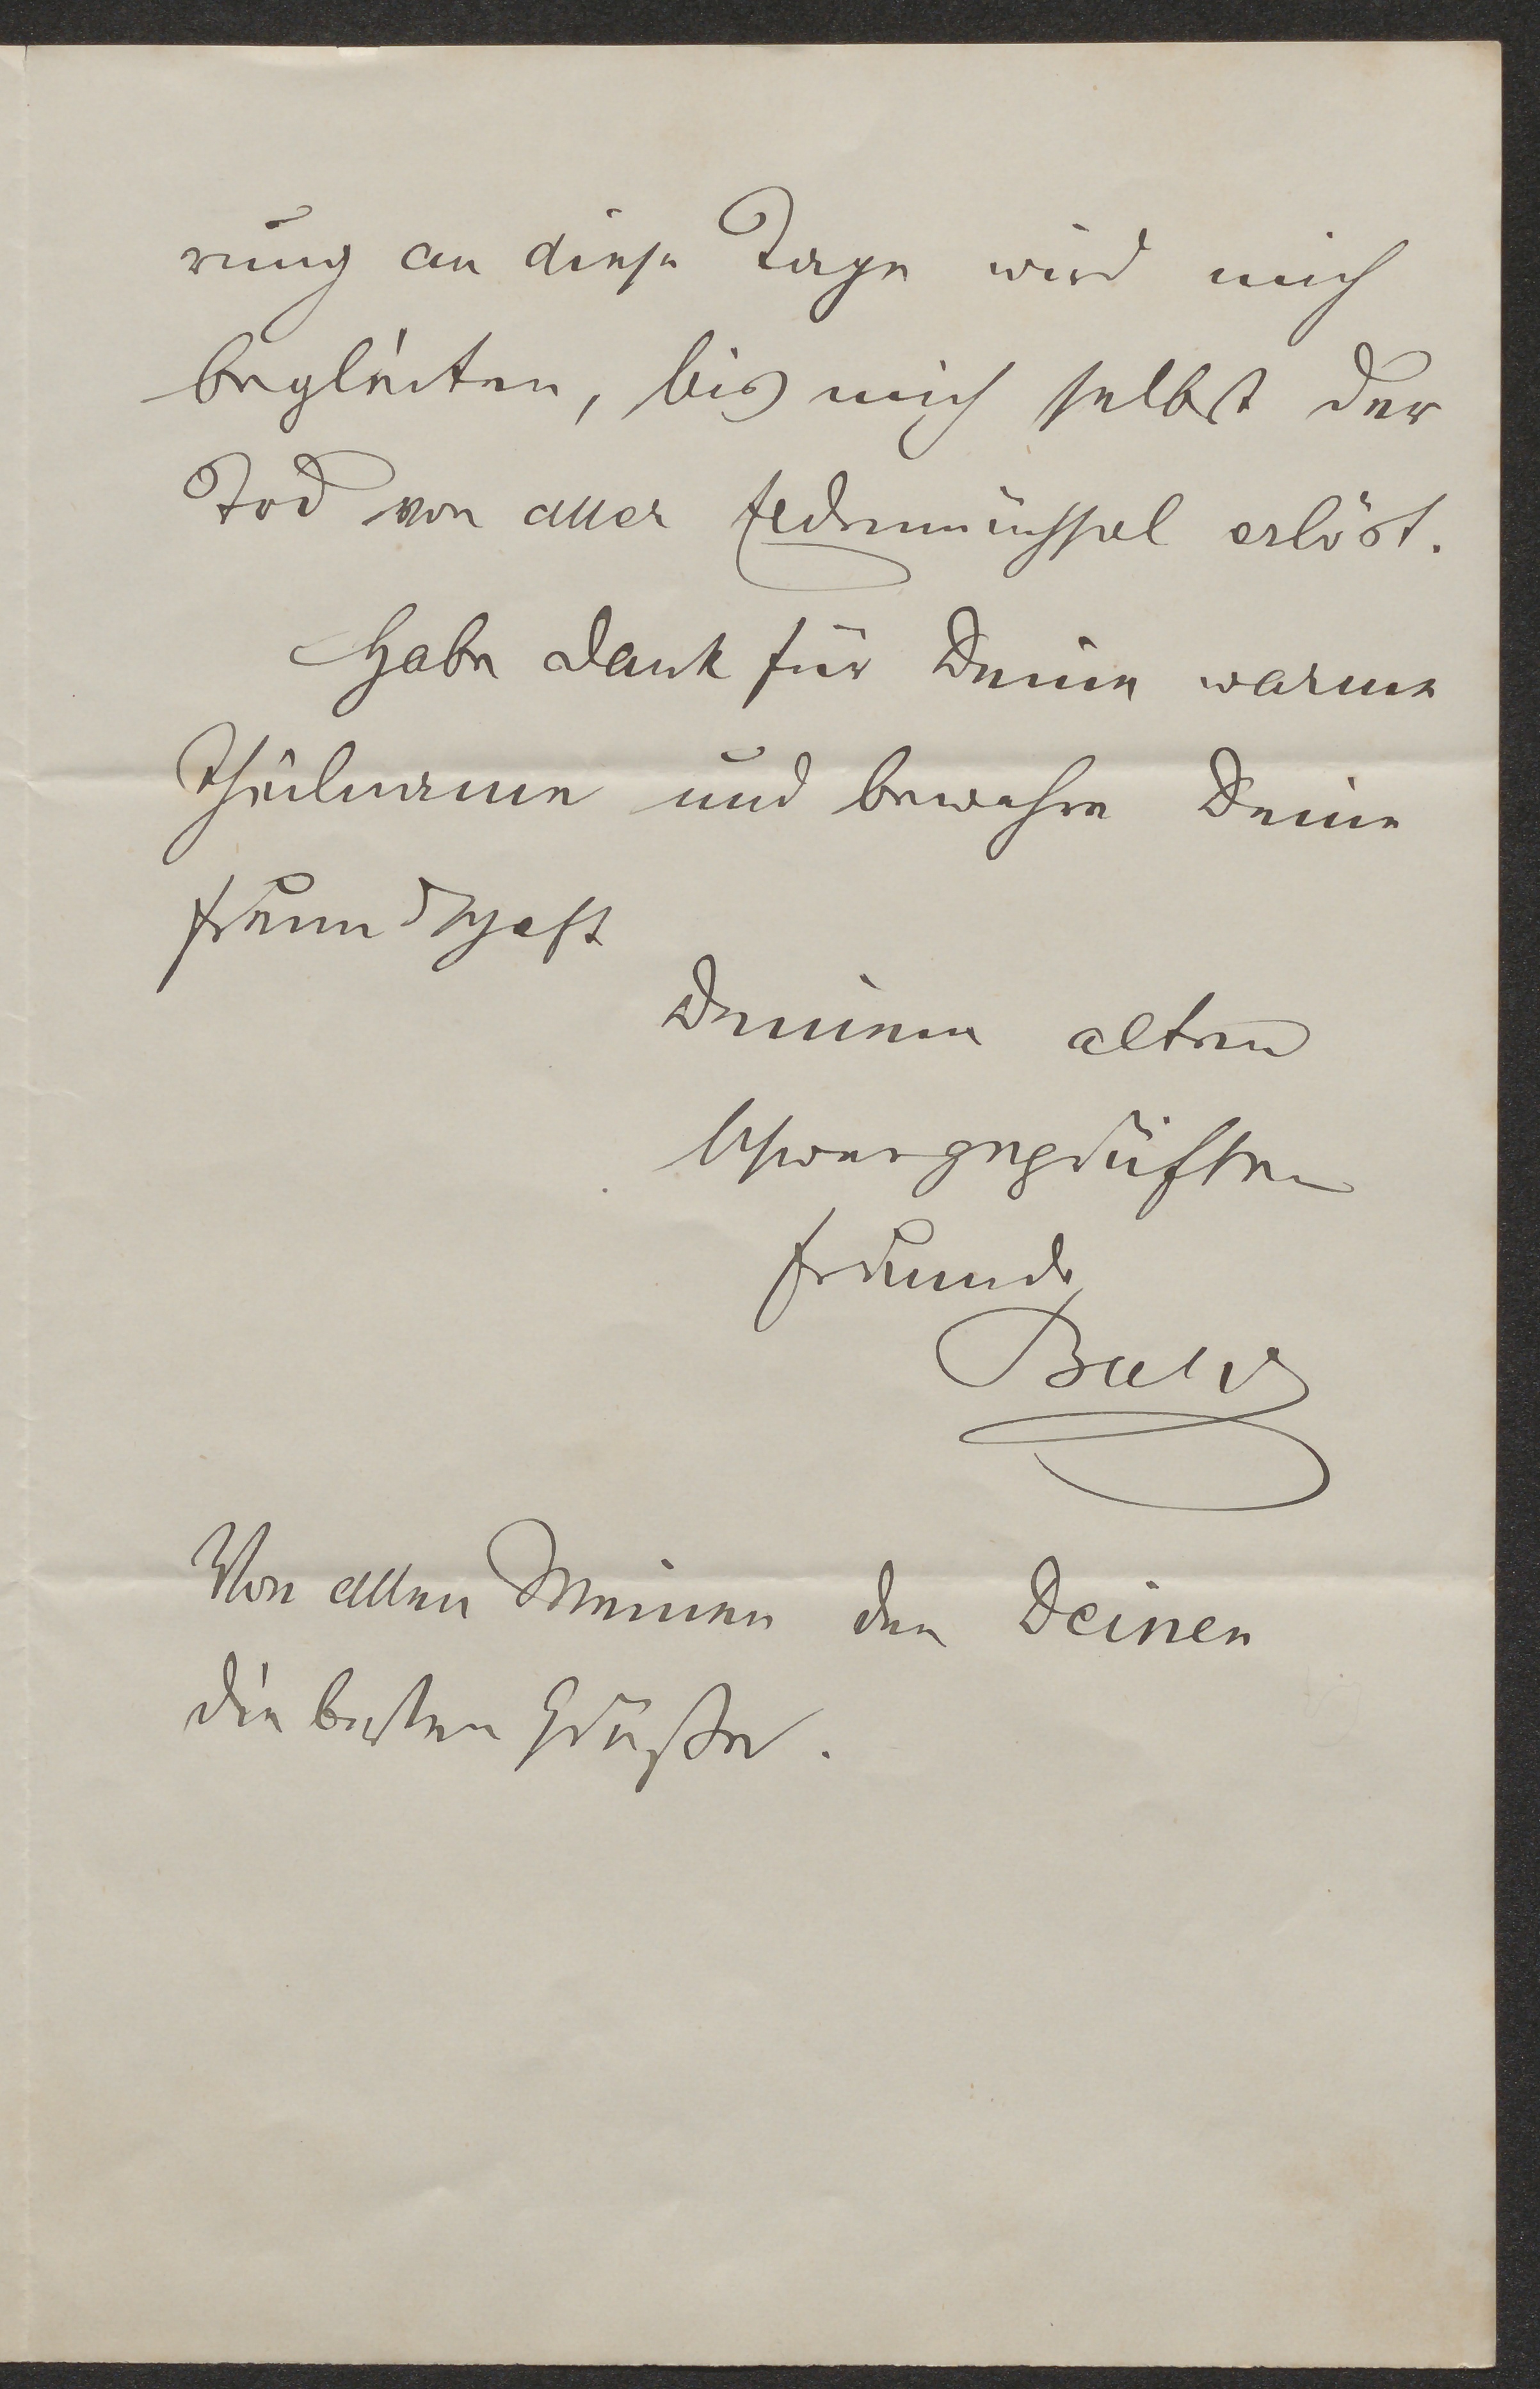 rung an diese Tage wird mich
begleiten, bis mich selbst der
Tod von aller Erdenmühsal erlöst.
Habe Dank für Deine warme
Theilname und bewahre Deine
Freundschaft
Deinem alten
schwergeprüften
Freunde
Von allen Meinen den Deinen
die besten Grüße.